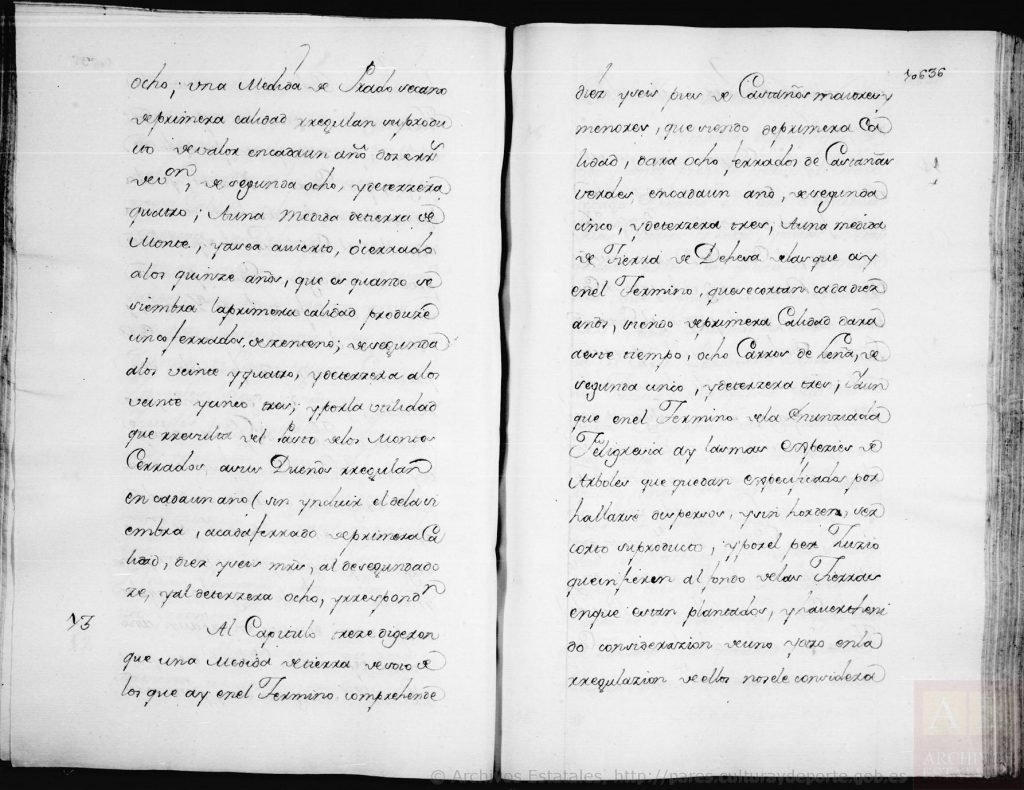 ocho; una Medida de Prado secano
de primera calidad rregulan su produ
cto de valor en cada un año doze rrs
de von, de segunda ocho, y de terzera
quatro; A una medida de tierra de
Monte, ya sea auierto, ó cerrado
a los quinze años, que es quando se
siembra la primera calidad produze
cinco ferrados de zenteno; de segunda
a los veinte y quatro, y de terzera a los
veinte y cinco tres; y por la utilidad
que rresulta del Pasto de los Montes
Cerrados, a sus Dueños rregulan
en cada un año (sin yncluir el de la si
embra, a cada ferrado de primera Ca
lidad, diez y seis mrs, al de segunda do
ze, y al de terzera ocho, y rrespondn
13 Al Capitulo treze digeron
que una Medida de tierra de soto de
los que ay en el Termino comprehende
10636
diez y seis pies de Castaños maiores y
menores, que siendo de primera Ca
lidad, dara ocho ferrados de Castañas
verdes, en cada un año, de segunda
cinco, y de terzera tres, A una medida
de Tierra de Dehesa de las que ay
en el Termino, que se cortan cada diez
años, siendo de primera Calidad dara
a este tiempo, ocho Carros de Leña, de
segunda cinco, y de terzera tres, Y aun
que en el Termino de la Enunziada
Feligresia ay las mas espezies de
Arboles que quedan espezificados por
hallarse dispersos, y sin horden, ser
corto su producto, y por el per Juizio
que infieren al fondo de las Tierras
en que estan plantados, y hauer theni
do considerazion de uno y otro en la
rregulazion de ellos no se le considera
© Archivos Estatales, http://pares.culturaydeporte.gob.es